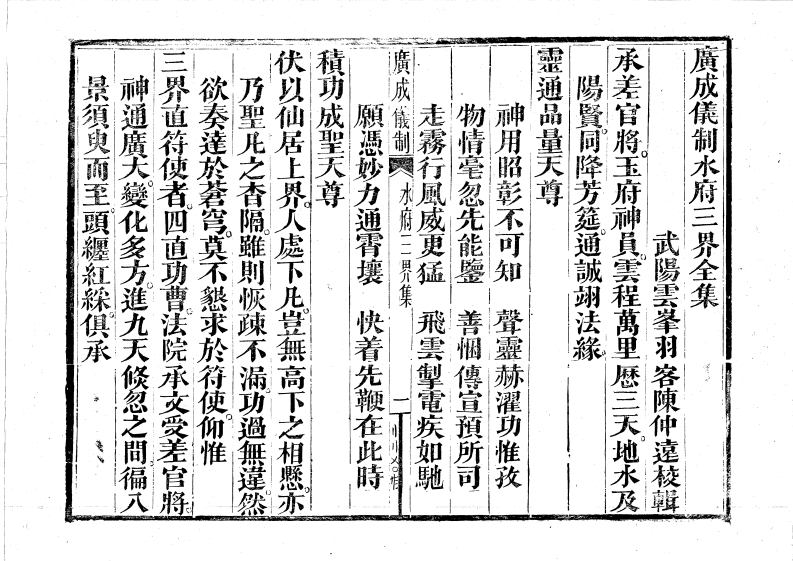 廣成儀制水府三界全集
武陽雲峯羽客陳仲遠校輯
承差官將。玉府神員。雲程萬里歷三天。地水及
陽賢。同降芳筵。通誠翊法緣。
靈通品量天尊
神用昭彰不可知　聲靈赫濯功惟孜
物情毫忽先能鑒　善悃傳宣預所司
走霧行風威更猛　飛雲掣電疾如馳
廣成儀制　水府三界集　一
願憑妙力通霄壤　快着先鞭在此時
積功成聖天尊
伏以仙居上界。人處下凡。豈無高下之相懸。亦
乃聖凡之杳隔。雖則恢疎不漏。功過無違。然
欲奏達於蒼穹。莫不懇求於符使。仰惟
三界直符使者。四直功曹。法院承文受差官將。
神通廣大。變化多方。進九天倐忽之間。徧八
景須臾而至。頭纏紅綵。俱承